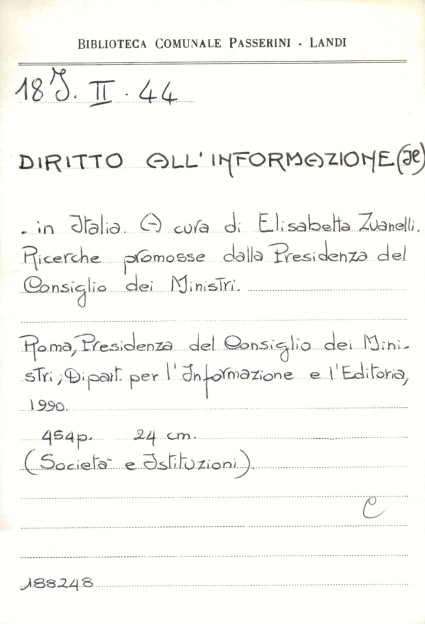 BIBLIOTECA COMUNALE PASSERINI - LANDI
18 J. II. 44
DIRITTO ALL'INFORMAZIONE (Il)
- in Italia. A cura di Elisabetta Zuanelli.
Ricerche promosse dalla Presidenza del
Consiglio dei Ministri.
Roma, Presidenza del Consiglio dei Mini-
stri; Dipart. per l'Informazione e l'Editoria,
1990.
454p. 24 cm.
(Società e Istituzioni).
C
188248